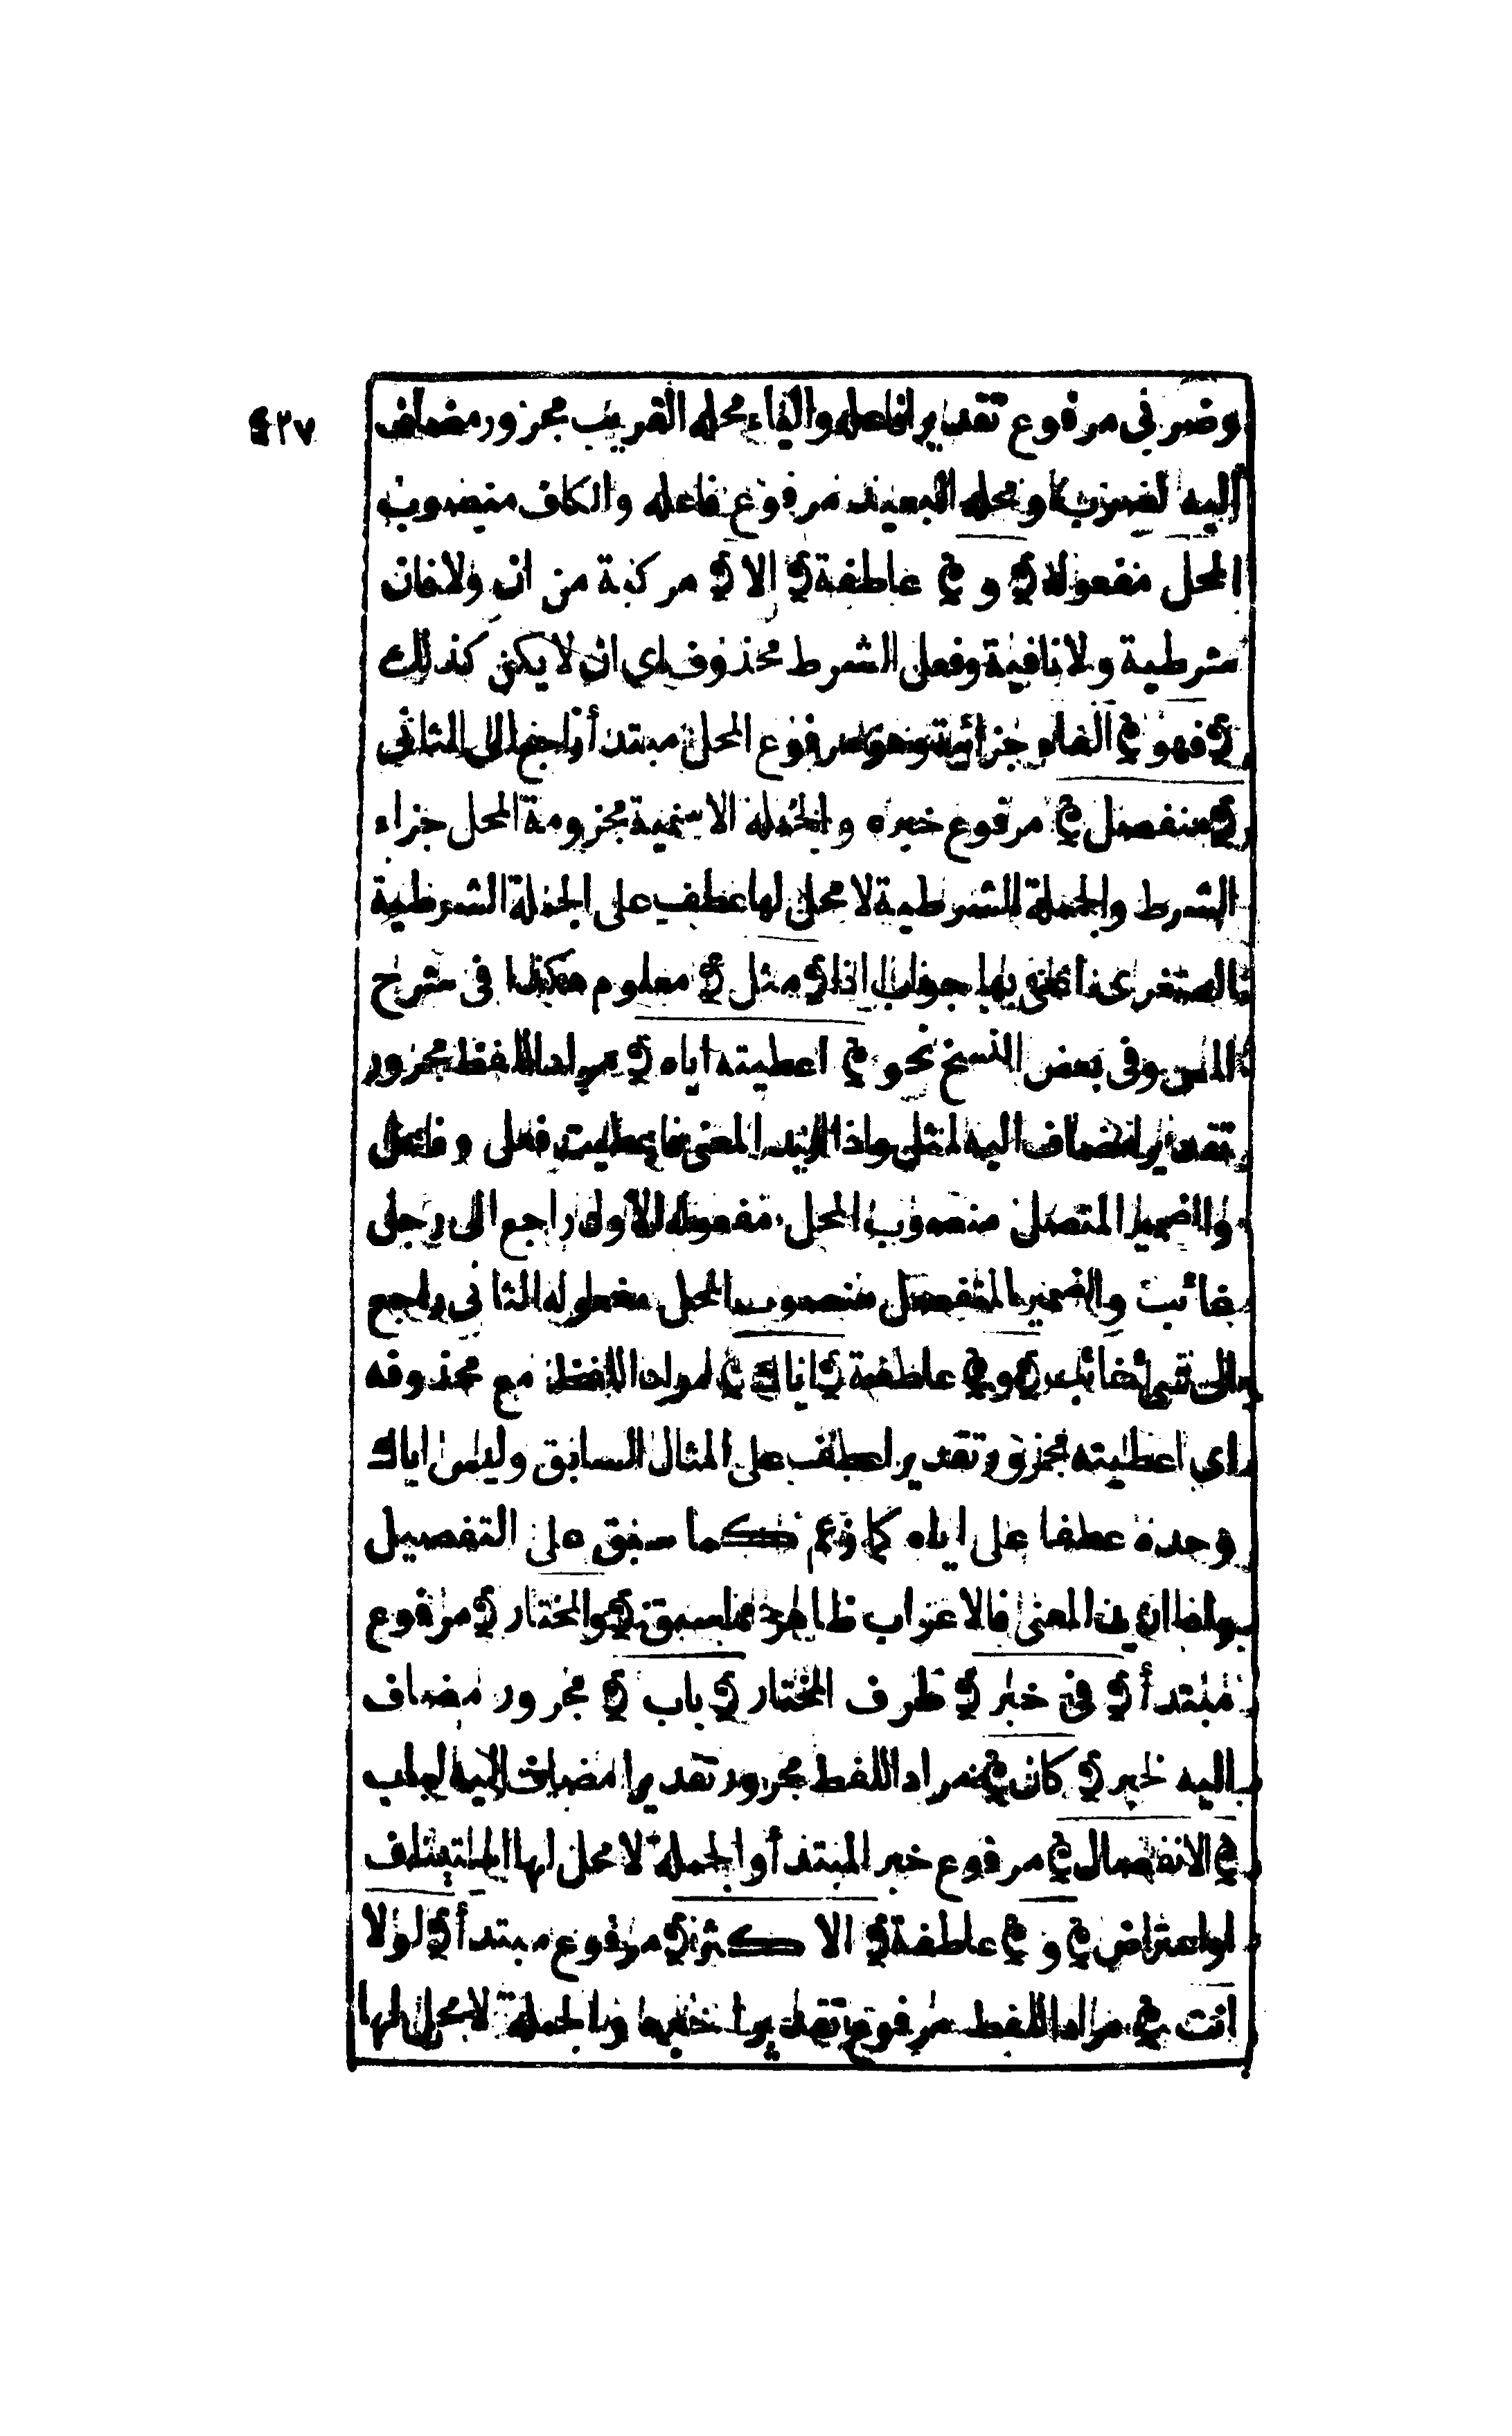 ٤٢٧
وضربى مرفوع تقديرا فاعله والياء محله القريب مجرور مضاف
اليه لضرب ومحله البعيد مرفوع فاعله والكاف منصوب
المحل مفعوله ﴿ و ﴾ عاطفة ﴿ الا ﴾ مركبة من ان ولا فان
شرطية ولا نافية وفعل الشرط محذوف اى ان لا يكن كذلك
﴿ فهو ﴾ الفاء جزائية وهو مرفوع المحل مبتدأ راجع الى الثانى
﴿ منفصل ﴾ مرفوع خبره والجملة الاسمية مجزومة المحل جزاء
الشرط والجملة الشرطية لا محل لها عطف على الجملة الشرطية
الصغرى اعنى بها جواب اذا ﴿ مثل ﴾ معلوم هكذا فى شرح
وفى بعض النسخ نحو ﴿ اعطيته اياه ﴾ مراد اللفظ مجرور
تقديرا مضاف اليه لمثل واذا اريد المعنى فاعطيت فعل وفاعل
والضمير المتصل منصوب المحل مفعوله الاول راجع الى رجل
غائب والضمير المنفصل منصوب المحل مفعوله الثانى راجع
الى غائب ﴿ و ﴾ عاطفة ﴿ اياك ﴾ مراد اللفظ مع محذوفه
اى اعطيته مجرور تقديرا عطف على المثال السابق وليس اياك
وحده عطفا على اياه كما زعم كما سبق على التفصيل
واما ان المعنى فالاعراب ظاهر مما سبق ﴿ والمختار ﴾ مرفوع
مبتدأ ﴿ فى خبر ﴾ ظرف المختار ﴿ باب ﴾ مجرور مضاف
اليه لخبر ﴿ كان ﴾ مراد اللفظ مجرور تقديرا مضاف اليه لباب
﴿ الانفصال ﴾ مرفوع خبر المبتدأ والجملة لا محل لها استيناف
او اعتراض ﴿ و ﴾ عاطفة ﴿ الاكثر ﴾ مرفوع مبتدأ ﴿ لولا
انت ﴾ مراد اللفظ مرفوع تقديرا خبرها والجملة لا محل لها